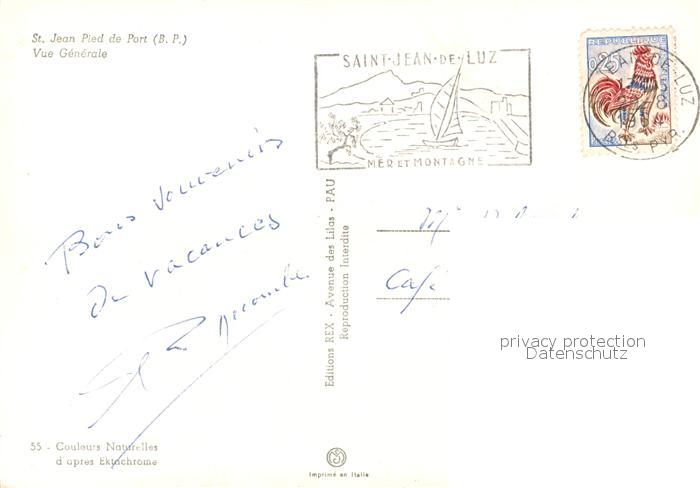 St. Jean Pied de Port (B. P.)
Vue Générale
SAINT-JEAN-DE-LUZ
MER ET MONTAGNE
REPUBLIQUE
0,25
Bons souvenirs
de vacances
Editions REX - Avenue des Lilas - PAU
Reproduction Interdite
Café
privacy protection
Datenschutz
55 - Couleurs Naturelles
d'apres Ektachrome
Imprimé en Italie